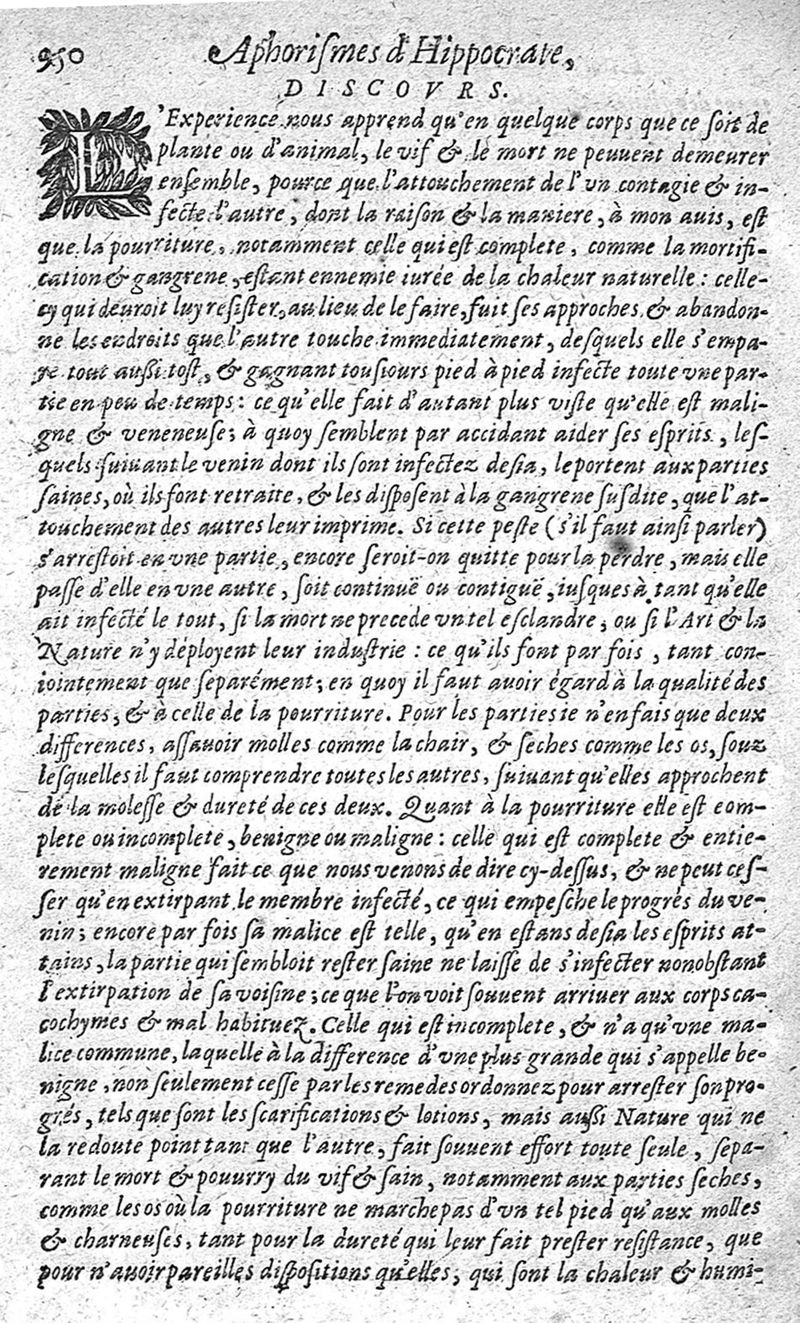 950 Aphoriſmes d'Hippocrate,
DISCOVRS.
L'Experience nous apprend qu'en quelque corps que ce ſoit de
plante ou d'animal, le vif & le mort ne peuuent demeurer
enſemble, pource que l'attouchement de l'vn contagie & in-
fecte l'autre, dont la raiſon & la maniere, à mon auis, eſt
que la pourriture, notamment celle qui eſt complete, comme la mortifi-
cation & gangrene, eſtant ennemie iurée de la chaleur naturelle : celle-
cy qui deuroit luy reſiſter, au lieu de le faire, fuit ſes approches & abandon-
ne les endroits que l'autre touche immediatement, deſquels elle s'empa-
re tout auſſi toſt, & gagnant touſiours pied à pied infecte toute vne par-
tie en peu de temps : ce qu'elle fait d'autant plus viſte qu'elle eſt mali-
gne & veneneuſe; à quoy ſemblent par accidant aider ſes eſprits, leſ-
quels ſuiuant le venin dont ils ſont infectez deſia, le portent aux parties
ſaines, où ils font retraite, & les diſpoſent à la gangrene ſuſdite, que l'at-
touchement des autres leur imprime. Si cette peſte (s'il faut ainſi parler)
s'arreſtoit en vne partie, encore ſeroit-on quitte pour la perdre, mais elle
paſſe d'elle en vne autre, ſoit continuë ou contiguë, iuſques à tant qu'elle
ait infecté le tout, ſi la mort ne precede vn tel eſclandre, ou ſi l'Art & la
Nature n'y déployent leur induſtrie : ce qu'ils font par fois, tant con-
iointement que ſeparément; en quoy il faut auoir égard à la qualité des
parties, & à celle de la pourriture. Pour les parties ie n'en fais que deux
differences, aſſauoir molles comme la chair, & ſeches comme les os, ſouz
leſquelles il faut comprendre toutes les autres, ſuiuant qu'elles approchent
de la moleſſe & dureté de ces deux. Quant à la pourriture elle eſt com-
plete ou incomplete, benigne ou maligne : celle qui eſt complete & entie-
rement maligne fait ce que nous venons de dire cy-deſſus, & ne peut ceſ-
ſer qu'en extirpant le membre infecté, ce qui empeſche le progrés du ve-
nin; encore par fois ſa malice eſt telle, qu'en eſtans deſia les eſprits at-
tains, la partie qui ſembloit reſter ſaine ne laiſſe de s'infecter nonobſtant
l'extirpation de ſa voiſine; ce que l'on voit ſouuent arriuer aux corps ca-
cochymes & mal habituez. Celle qui eſt incomplete, & n'a qu'vne ma-
lice commune, laquelle à la difference d'vne plus grande qui s'appelle be-
nigne, non ſeulement ceſſe par les remedes ordonnez pour arreſter ſon pro-
grés, tels que ſont les ſcarifications & lotions, mais auſſi Nature qui ne
la redoute point tant que l'autre, fait ſouuent effort toute ſeule, ſepa-
rant le mort & pouurry du vif & ſain, notamment aux parties ſeches,
comme les os où la pourriture ne marche pas d'vn tel pied qu'aux molles
& charneuſes, tant pour la dureté qui leur fait preſter reſiſtance, que
pour n'auoir pareilles diſpoſitions qu'elles, qui ſont la chaleur & humi-